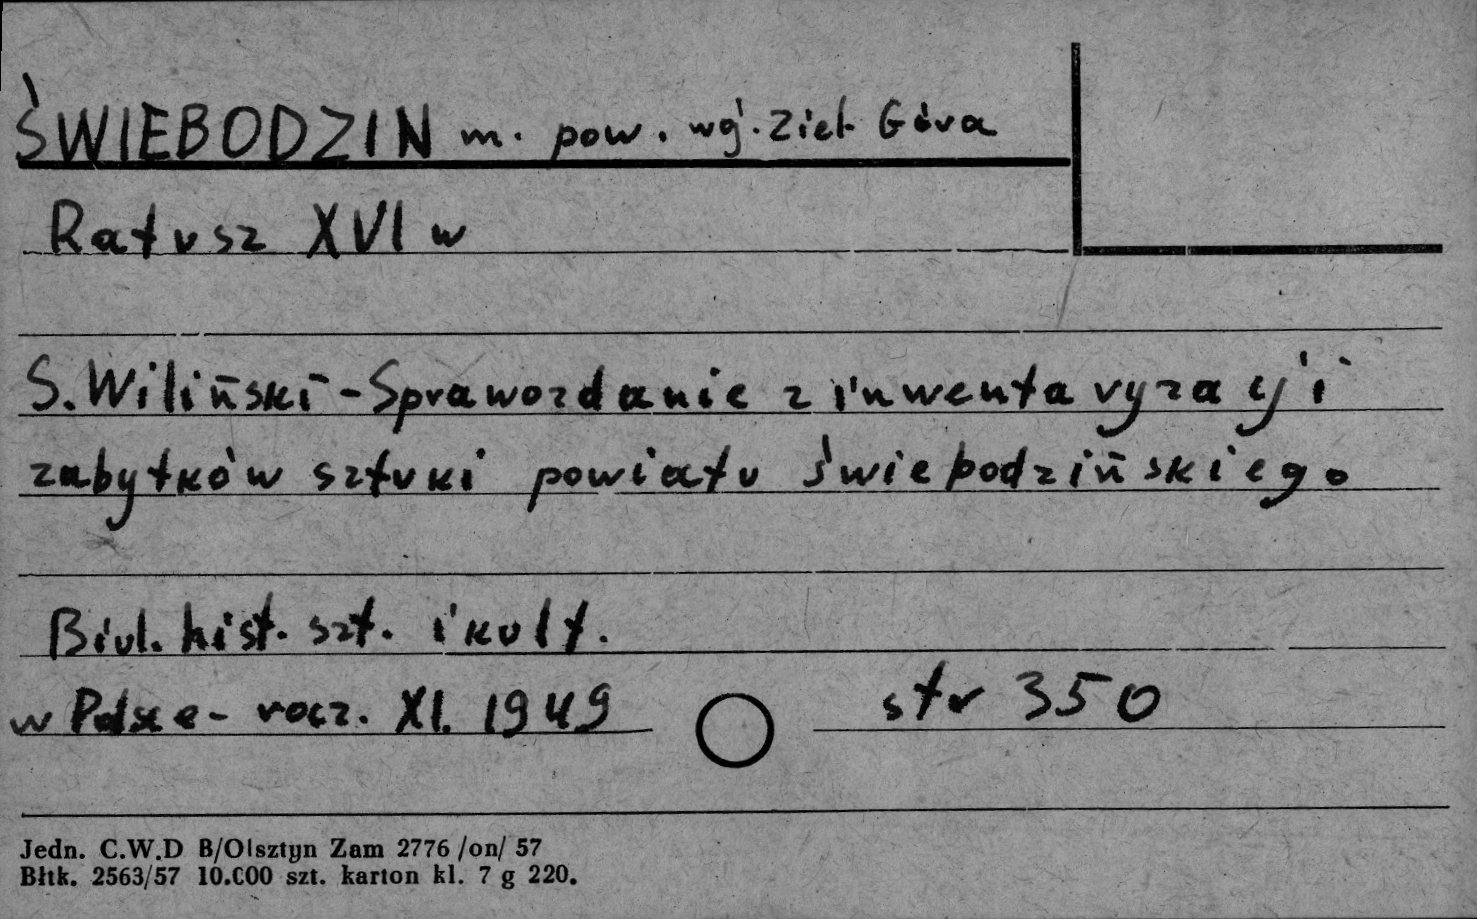 ŚWIEBODZIN m. pow. woj. Ziel. Góra
Ratusz XVI w
S. Wiliński - Sprawozdanie z inwentaryzacji
zabytków sztuki powiatu świebodzińskiego
Biul. hist. szt. i kult.
w Polsce - rocz. XI. 1949 str 350
Jedn. C.W.D B/Olsztyn Zam 2776 /on/ 57
Błtk. 2563/57 10.000 szt. karton kl. 7 g 220.